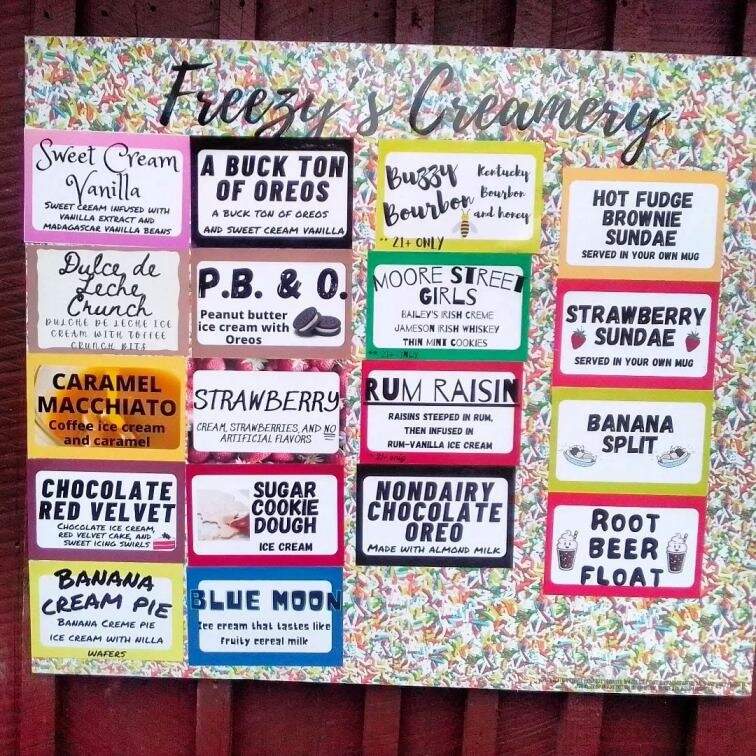 Freezy's Creamery
Sweet Cream
Vanilla
SWEET CREAM INFUSED WITH
VANILLA EXTRACT AND
MADAGASCAR VANILLA BEANS
Dulce de
Leche
Crunch
DULCHE DE LECHE ICE
CREAM WITH TOFFEE
CRUNCH BITS
CARAMEL
MACCHIATO
Coffee ice cream
and caramel
CHOCOLATE
RED VELVET
CHOCOLATE ICE CREAM,
RED VELVET CAKE, AND
SWEET ICING SWIRLS
BANANA
CREAM PIE
BANANA CREME PIE
ICE CREAM WITH NILLA
WAFERS
A BUCK TON
OF OREOS
A BUCK TON OF OREOS
AND SWEET CREAM VANILLA
P.B. & O.
Peanut butter
ice cream with
Oreos
STRAWBERRY
CREAM, STRAWBERRIES, AND NO
ARTIFICIAL FLAVORS
SUGAR
COOKIE
DOUGH
ICE CREAM
BLUE MOON
Ice cream that tastes like
fruity cereal milk
Buzzy
Bourbon
Kentucky
Bourbon
and honey
** 21+ ONLY
MOORE STREET
GIRLS
BAILEY'S IRISH CREME
JAMESON IRISH WHISKEY
THIN MINT COOKIES
** 21+ ONLY
RUM RAISIN
RAISINS STEEPED IN RUM,
THEN INFUSED IN
RUM-VANILLA ICE CREAM
NONDAIRY
CHOCOLATE
OREO
MADE WITH ALMOND MILK
HOT FUDGE
BROWNIE
SUNDAE
SERVED IN YOUR OWN MUG
STRAWBERRY
SUNDAE
SERVED IN YOUR OWN MUG
BANANA
SPLIT
ROOT
BEER
FLOAT